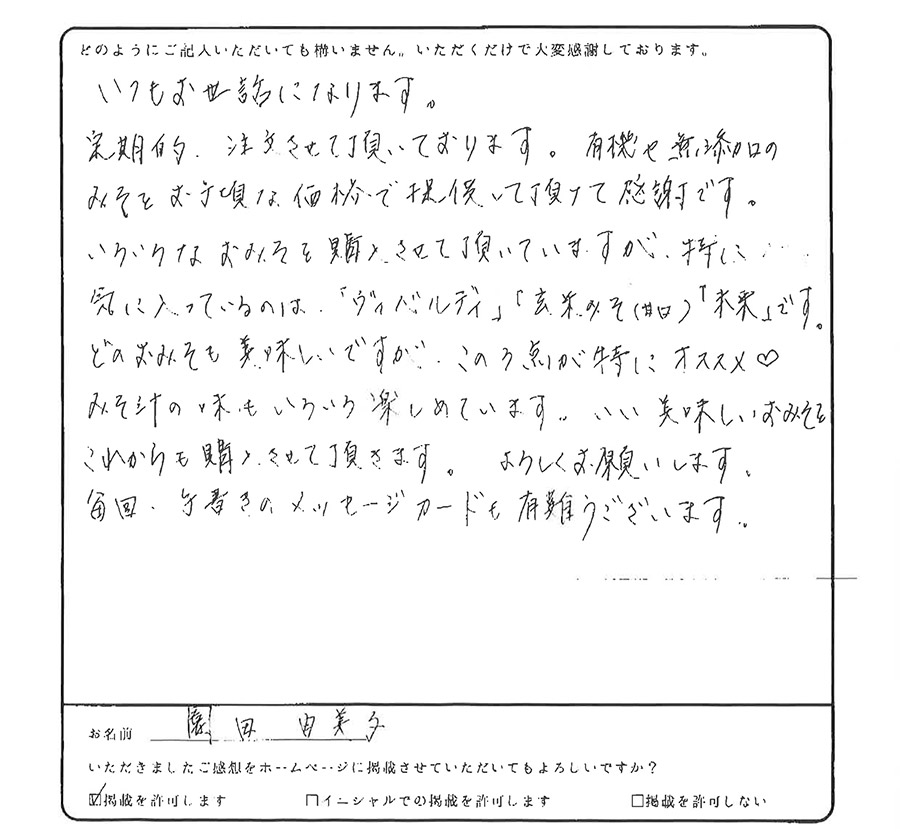 どのようにご記入いただいても構いません。いただくだけで大変感謝しております。
いつもお世話になります。
定期的、注文させて頂いております。有機や無添加の
みそをお手頃な価格で提供して頂けて感謝です。
いろいろなおみそを購入させて頂いていますが、特に
気に入っているのは、「ヴィバルディ」「玄米みそ(甘口)「未来」です。
どのおみそも美味しいですが、この3点が特にオススメ♡
みそ汁の味もいろいろ楽しめています。いい美味しいおみそを
これからも購入させて頂きます。よろしくお願いします、
毎回、手書きのメッセージカードも有難うございます。
お名前 園田 由美子
いただきましたご感想をホームページに掲載させていただいてもよろしいですか?
☑掲載を許可します □イニシャルでの掲載を許可します □掲載を許可しない